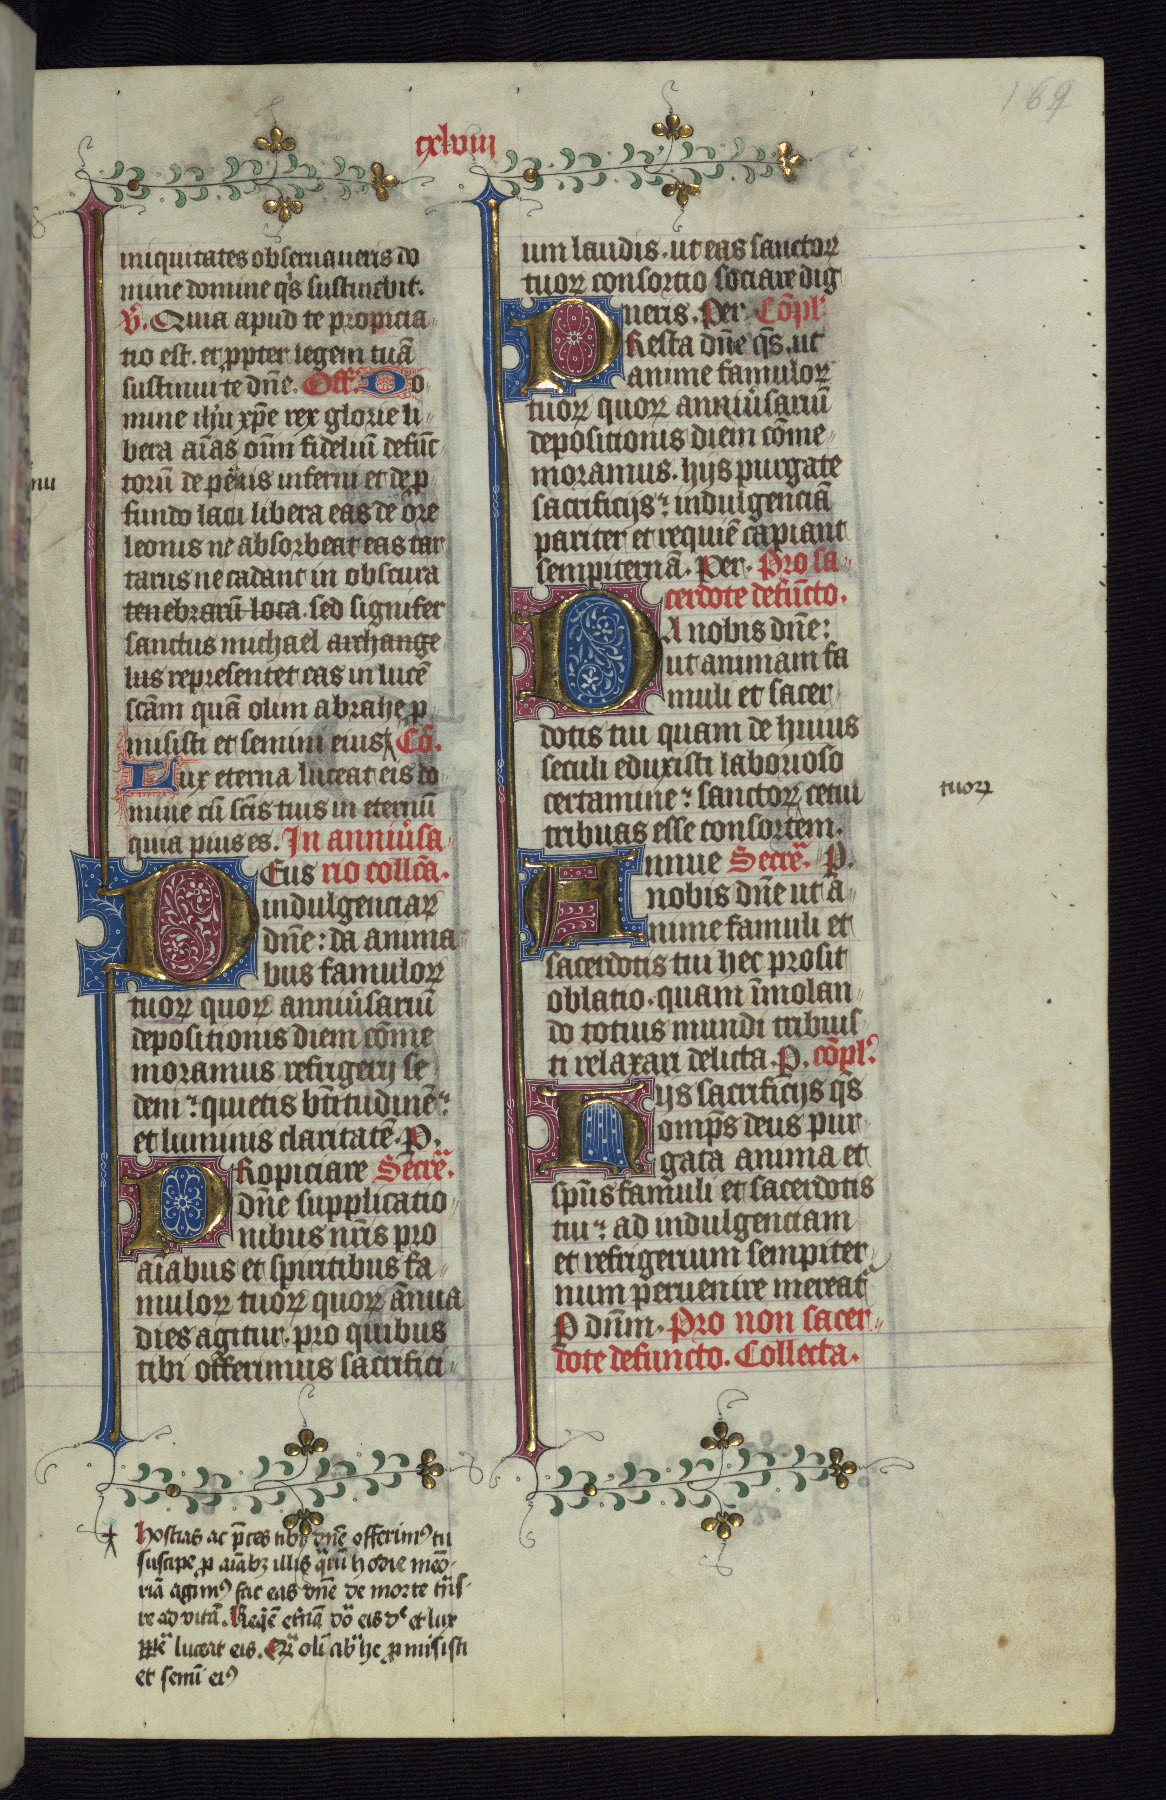 169
cxlviii
iniquitates obseruaueris do
mine domine q̇s sustinebit.
V̄. Quia apud te propicia
tio est. et ꝓpter legem tuā
sustinui te dn̄e. Off. Do
mine ihu xp̄e rex glorie li
bera aīas om̄ fideliū defūc
torū de penis inferni et de ꝓ
fundo laci libera eas de ore
leonis ne absorbeat eas tar
tarus ne cadant in obscura
tenebrarū loca. sed signifer
sanctus michael archange
lus representet eas in lucē
sc̄am quā olim abrahe ꝓ
misisti et semini eius. Cō.
Lux eterna luceat eis do
mine cū sc̄is tuis in eternū
quia pius es. In anniūsa
Deus rio collc̄a.
indulgenciaꝝ
dn̄e: da anima
bus famuloꝝ
tuoꝝ quoꝝ anniūsariū
depositionis diem cōme
moramus refrigerij se
dem: quietis bt̄itudinē:
et luminis claritatē. P.
Propiciare Secre.
dn̄e supplicatio
nibus nr̄is pro
aīabus et spiritibus fa
muloꝝ tuoꝝ quoꝝ ānua
dies agitur. pro quibus
tibi offerimus sacrifici
um laudis. ut eas sanctoꝝ
tuoꝝ consortio sociare dig
neris. Per. Cōpl'
Presta dn̄e q̄s. ut
anime famuloꝝ
tuoꝝ quoꝝ anniūsariū
depositionis diem cōme
moramus. hijs purgate
sacrificijs: indulgenciā
pariter et requiē capiant
sempiternā. Per. Pro sa
cerdote defūcto.
Da nobis dn̄e:
ut animam fa
muli et sacer
dotis tui quam de huius
seculi eduxisti laborioso
certamine: sanctoꝝ cetui
tuoꝝ
tribuas esse consortem.
Annue Secre. P.
nobis dn̄e ut a
nime famuli et
sacerdotis tui hec prosit
oblatio. quam īmolan
do totius mundi tribuis
ti relaxari delicta. P. cōpl'
Hijs sacrificijs q̄s
omp̄s deus pur
gata anima et
sp̄us famuli et sacerdotis
tui: ad indulgenciam
et refrigerium sempiter
num peruenire mereat̄
P dn̄m. Pro non sacer
dote defuncto. Collecta.
Hostias ac p̄ces tibi dn̄e offerim⁹ tu
suscipe ꝓ aīabꝫ illis q̄rū hodie memo
riā agim⁹ fac eas dn̄e de morte trāsi
re ad vitā. Reqͥē et̄nā dō eis dᵉ et lux
luceat eis. Qᵃ olī abͬhe ꝓmisisti
et semī ei⁹